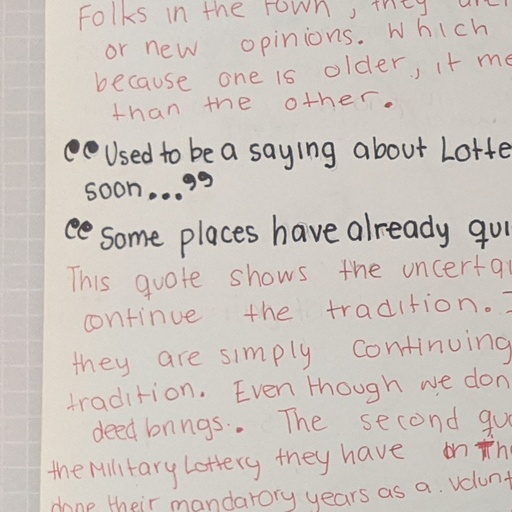 Folks in the town, they
or new opinions. Which
because one is older, it me
than the other.
"Used to be a saying about Lotte
soon..."
"Some places have already qui
This quote shows the uncerta
continue the tradition.
they are simply continuing
tradition. Even though we don
deed brings. The second quo
the Military Lottery they have in Th
done their mandatory years as a volunt